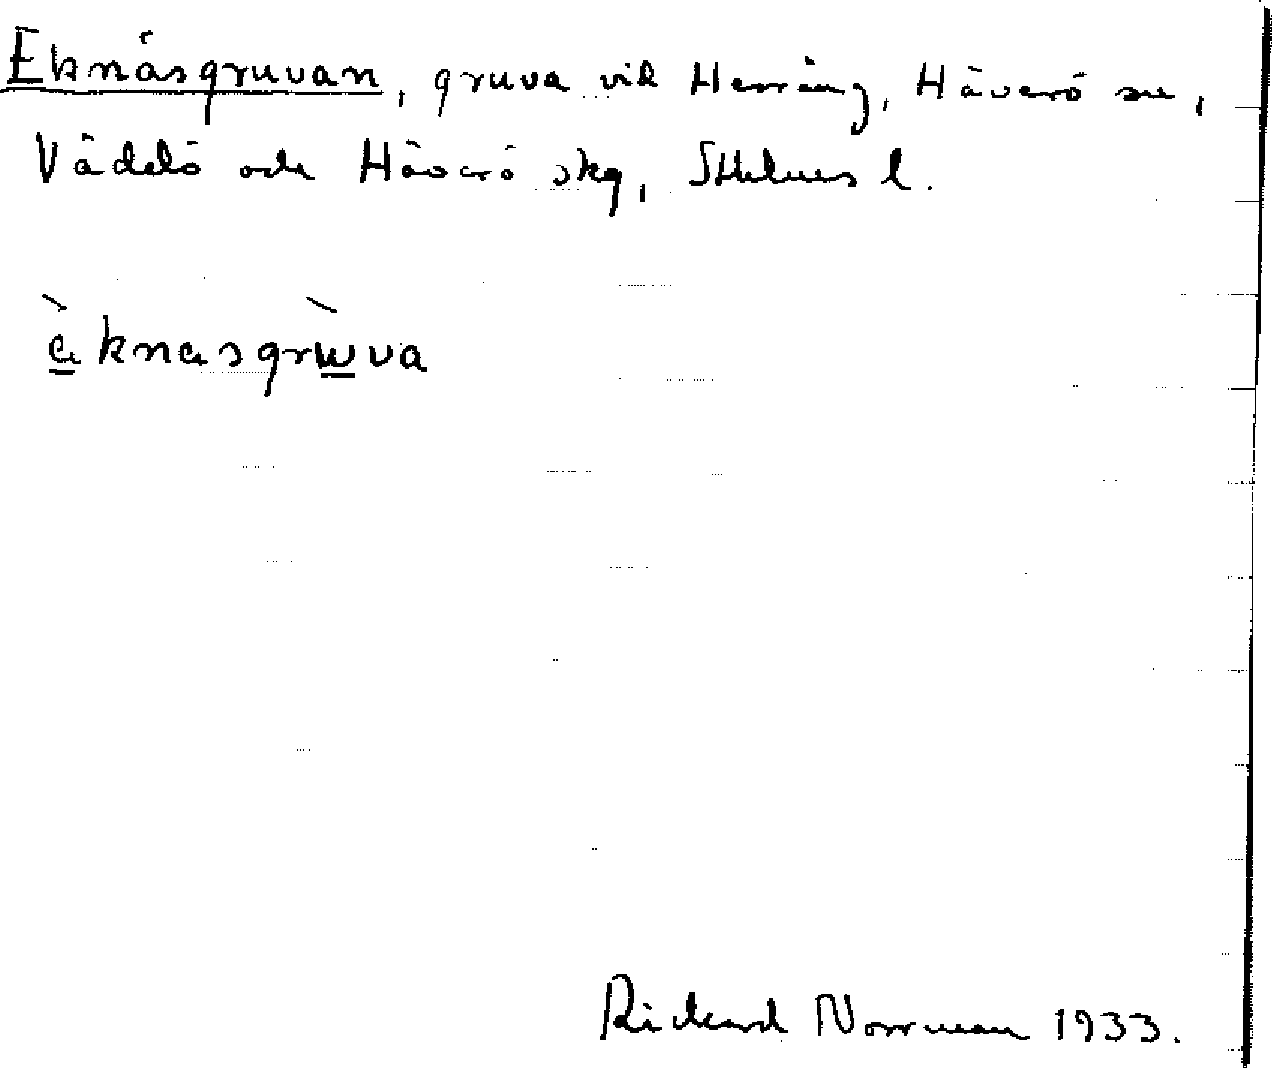 Eknäsgruvan, gruva vid Herräng, Häverö sn,
Väddö och Häverö skg, Sthlms l.
Rickard Norrman 1933.